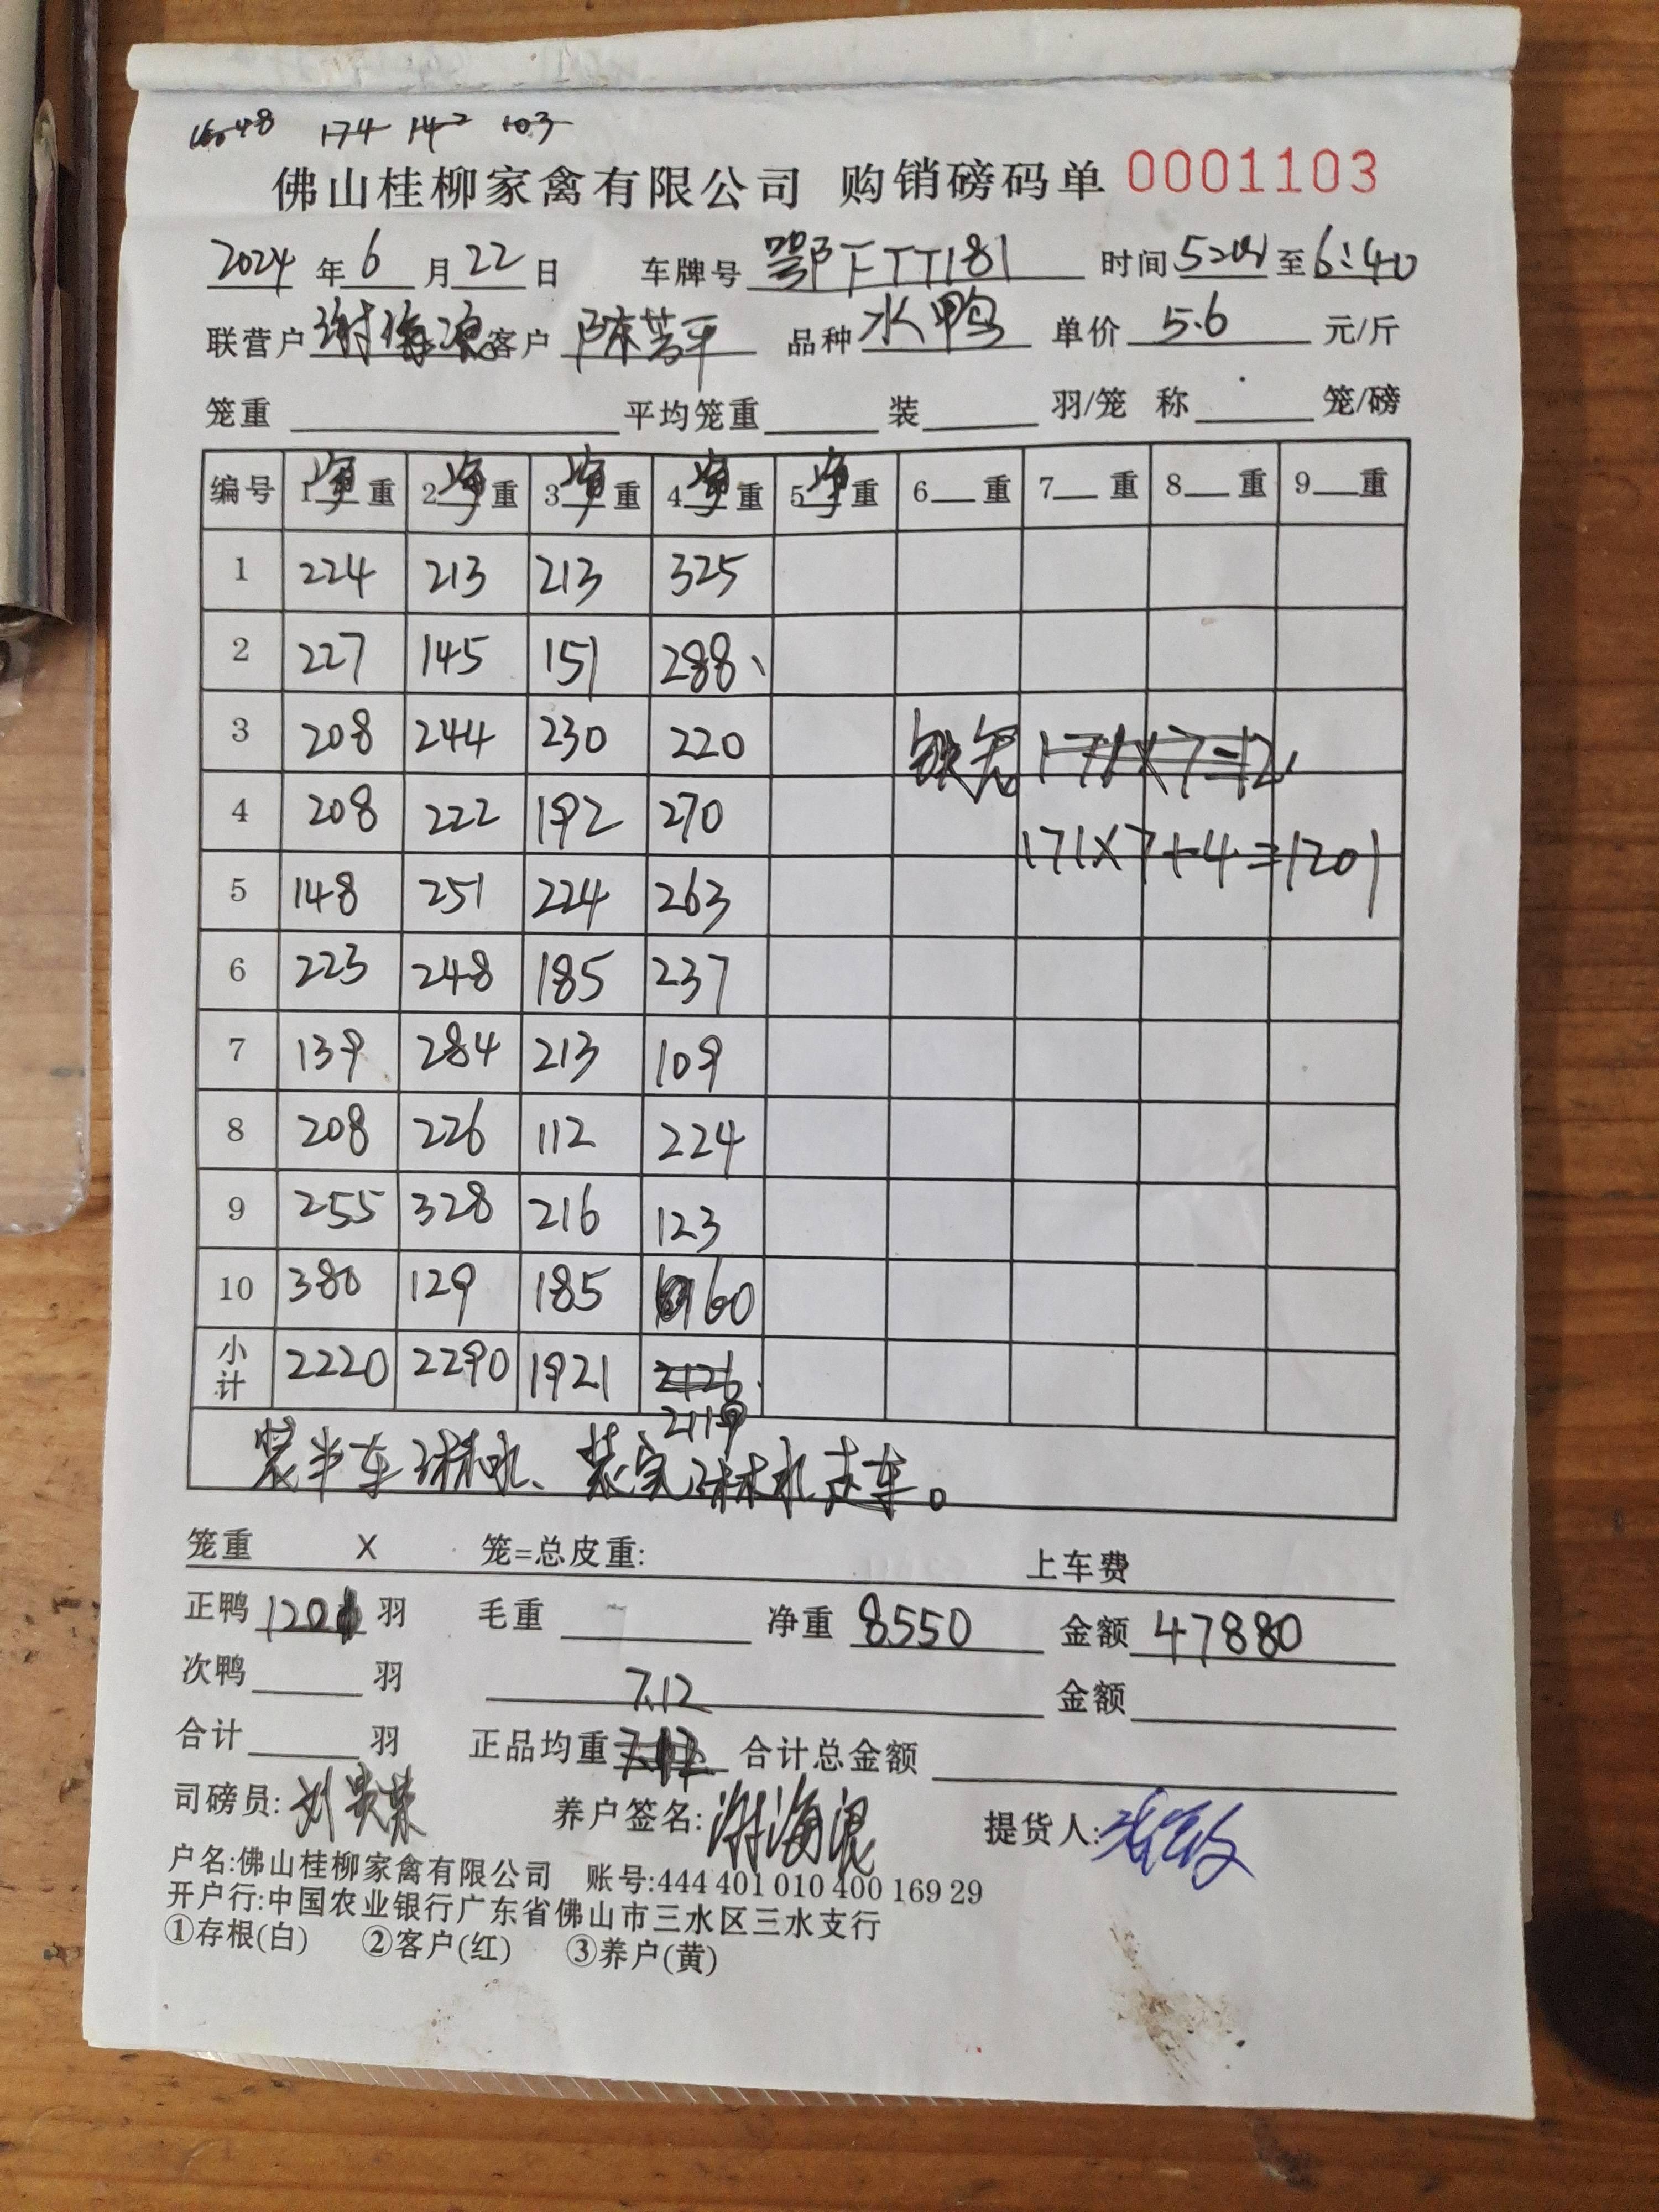 174 142 103
佛山桂柳家禽有限公司 购销磅码单 0001103
2024年6月22日 车牌号鄂FTT181 时间 至6:40
联营户谢海浪 客户陈芳平 品种水鸭 单价5.6元/斤
笼重 平均笼重 装 羽/笼 称 笼/磅
编号 1净重 2净重 3净重 4净重 5净重 6 重 7 重 8 重 9 重
1 224 213 213 325
2 227 145 151 288、
3 208 244 230 220 铁笼
4 208 222 192 270 171X7+4=1201
5 148 251 224 263
6 223 248 185 237
7 139 284 213 109
8 208 226 112 224
9 255 328 216 123
10 380 129 185 160
小计 2220 2290 1921 2126
2119
装半车淋水、装完淋水走车。
笼重 X 笼=总皮重: 上车费
正鸭1201羽 毛重 净重8550 金额47880
次鸭 羽 7.12 金额
合计 羽 正品均重 合计总金额
司磅员:刘 养户签名:谢海浪 提货人:
户名:佛山桂柳家禽有限公司 账号:444 401 010 400 169 29
开户行:中国农业银行广东省佛山市三水区三水支行
①存根(白) ②客户(红) ③养户(黄)